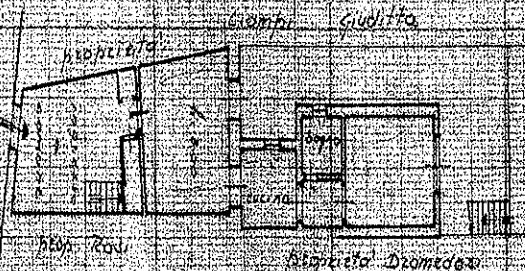 Ciampi Giuditta
proprietà
bagno
cucina
prop. Rasi
proprietà Dromedari